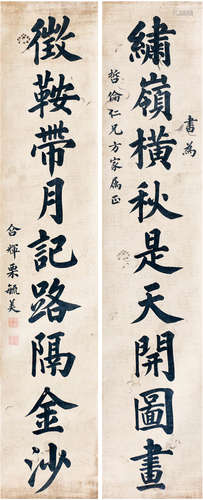 繡嶺橫秋是天開圖畫
書為
哲倫仁兄方家屬正
徵鞍帶月記路隔金沙
合輝栗毓美